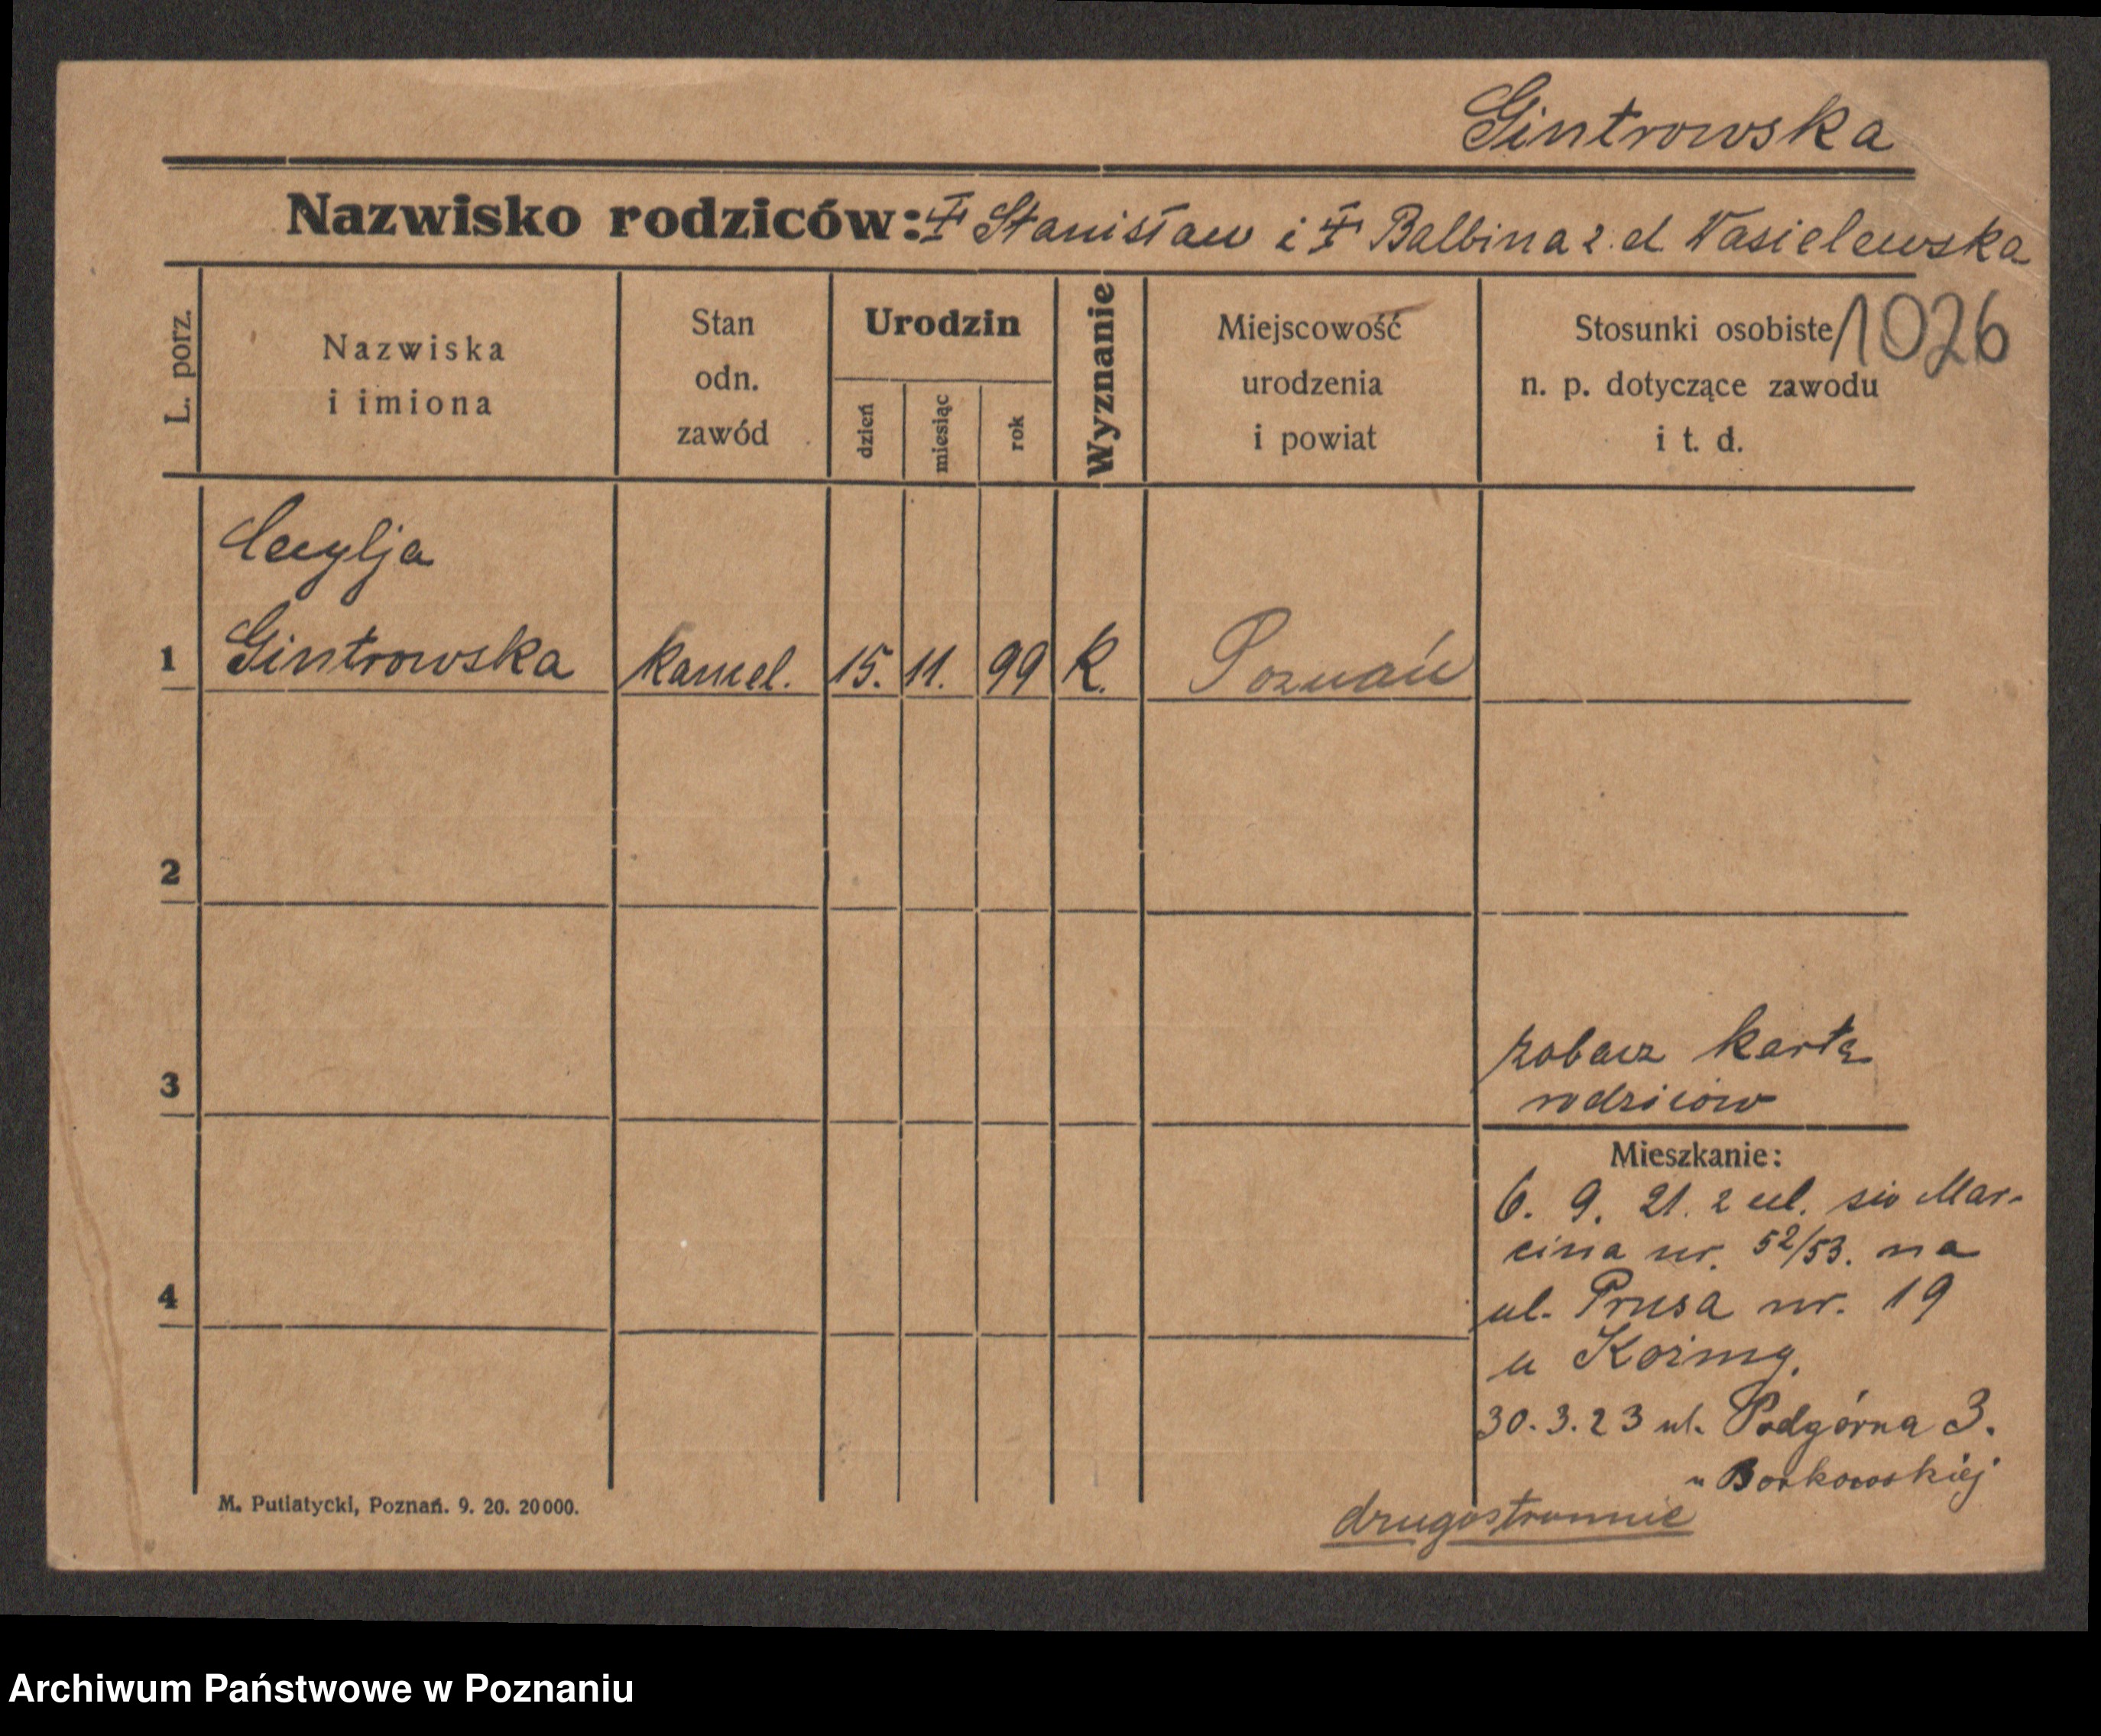 Gintrowska
Nazwisko rodziców: Stanisław i Balbina z. d. Wasielewska
L. porz.
Nazwiska
i imiona
Stan
odn.
zawód
Urodzin
dzień
miesiąc
rok
Wyznanie
Miejscowość
urodzenia
i powiat
Stosunki osobiste
n. p. dotyczące zawodu
i t. d.
1026
Cecylja
1 Gintrowska kancel. 15. 11. 99 k. Poznań
2
3
zobacz kartę
rodziców
Mieszkanie:
6. 9. 21. z ul. św Mar-
cina nr. 52/53. na
4
ul. Prusa nr. 19
u
30. 3. 23 ul. Podgórna 3.
u Borkowskiej
M. Putiatycki, Poznań. 9. 20. 20000.
drugostronnie
Archiwum Państwowe w Poznaniu